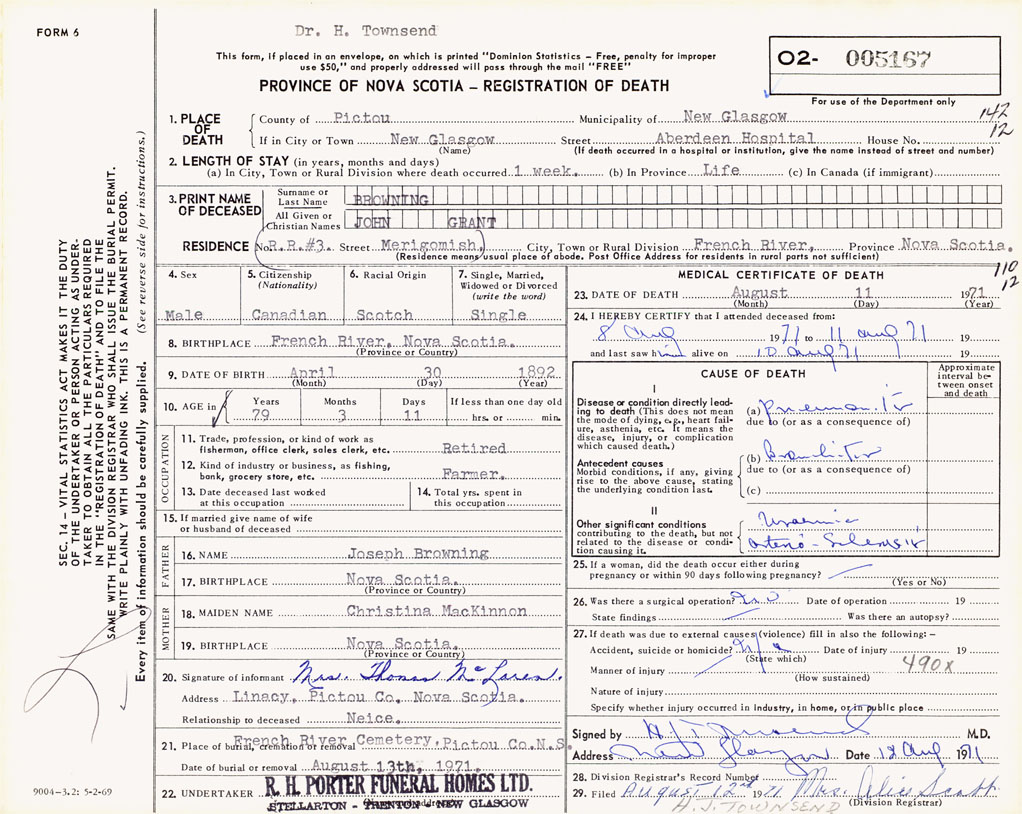 FORM 6
Dr. H. Townsend
This form, if placed in an envelope, on which is printed "Dominion Statistics – Free, penalty for improper
use $50," and properly addressed will pass through the mail "FREE"
PROVINCE OF NOVA SCOTIA – REGISTRATION OF DEATH
O2- 005167
For use of the Department only
142
12
1. PLACE OF DEATH County of Pictou Municipality of New Glasgow
If in City or Town New Glasgow Street Aberdeen Hospital House No.
(Name) (If death occurred in a hospital or institution, give the name instead of street and number)
2. LENGTH OF STAY (in years, months and days)
(a) In City, Town or Rural Division where death occurred 1 week. (b) In Province Life (c) In Canada (if immigrant)
3. PRINT NAME OF DECEASED Surname or Last Name BROWNING
All Given or Christian Names JOHN GRANT
RESIDENCE No. R.R.#3. Street Merigomish, City, Town or Rural Division French River, Province Nova Scotia.
(Residence means usual place of abode. Post Office Address for residents in rural parts not sufficient)
4. Sex Male
5. Citizenship (Nationality) Canadian
6. Racial Origin Scotch
7. Single, Married, Widowed or Divorced (write the word) Single
8. BIRTHPLACE French River, Nova Scotia.
(Province or Country)
9. DATE OF BIRTH April 30 1892
(Month) (Day) (Year)
10. AGE in Years Months Days If less than one day old
79 3 11 hrs. or min.
OCCUPATION
11. Trade, profession, or kind of work as
fisherman, office clerk, sales clerk, etc. Retired
12. Kind of industry or business, as fishing,
bank, grocery store, etc. Farmer.
13. Date deceased last worked
at this occupation
14. Total yrs. spent in
this occupation
15. If married give name of wife
or husband of deceased
FATHER
16. NAME Joseph Browning
17. BIRTHPLACE Nova Scotia.
(Province or Country)
MOTHER
18. MAIDEN NAME Christina MacKinnon
19. BIRTHPLACE Nova Scotia.
(Province or Country)
20. Signature of informant Mrs. Thomas McLaren.
Address Linacy, Pictou Co. Nova Scotia.
Relationship to deceased Neice.
21. Place of burial, cremation or removal French River Cemetery, Pictou Co. N.S.
Date of burial or removal August 13th, 1971.
22. UNDERTAKER R. H. PORTER FUNERAL HOMES LTD.
STELLARTON - TRENTON - NEW GLASGOW
110
12
MEDICAL CERTIFICATE OF DEATH
23. DATE OF DEATH August 11 1971
(Month) (Day) (Year)
24. I HEREBY CERTIFY that I attended deceased from:
8 Aug 1971 to 11 Aug 71 19
and last saw him alive on 10 Aug 71 19
CAUSE OF DEATH
Approximate interval between onset and death
I
Disease or condition directly leading to death (This does not mean the mode of dying, e.g., heart failure, asthenia, etc. It means the disease, injury, or complication which caused death.)
(a) Pneumonitis
due to (or as a consequence of)
Antecedent causes
Morbid conditions, if any, giving rise to the above cause, stating the underlying condition last.
(b) Bronchitis
due to (or as a consequence of)
(c)
II
Other significant conditions
contributing to the death, but not related to the disease or condition causing it.
Uraemia
Arterio-Sclerosis
25. If a woman, did the death occur either during
pregnancy or within 90 days following pregnancy?
(Yes or No)
26. Was there a surgical operation? No Date of operation 19
State findings Was there an autopsy?
27. If death was due to external causes (violence) fill in also the following: –
Accident, suicide or homicide? n/a Date of injury 19
(State which)
Manner of injury 490X
(How sustained)
Nature of injury
Specify whether injury occurred in industry, in home, or in public place
Signed by H. J. Townsend M.D.
Address New Glasgow Date 12 Aug 1971
28. Division Registrar's Record Number
29. Filed August 12nd 1971 Mrs. Alice Scott
H.J. TOWNSEND (Division Registrar)
SEC. 14 – VITAL STATISTICS ACT MAKES IT THE DUTY
OF THE UNDERTAKER OR PERSON ACTING AS UNDER-
TAKER TO OBTAIN ALL THE PARTICULARS REQUIRED
IN THE "REGISTRATION OF DEATH" AND TO FILE THE
SAME WITH THE DIVISION REGISTRAR WHO SHALL ISSUE THE BURIAL PERMIT.
WRITE PLAINLY WITH UNFADING INK. THIS IS A PERMANENT RECORD.
Every item of information should be carefully supplied. (See reverse side for instructions.)
9004–3.2: 5-2-69